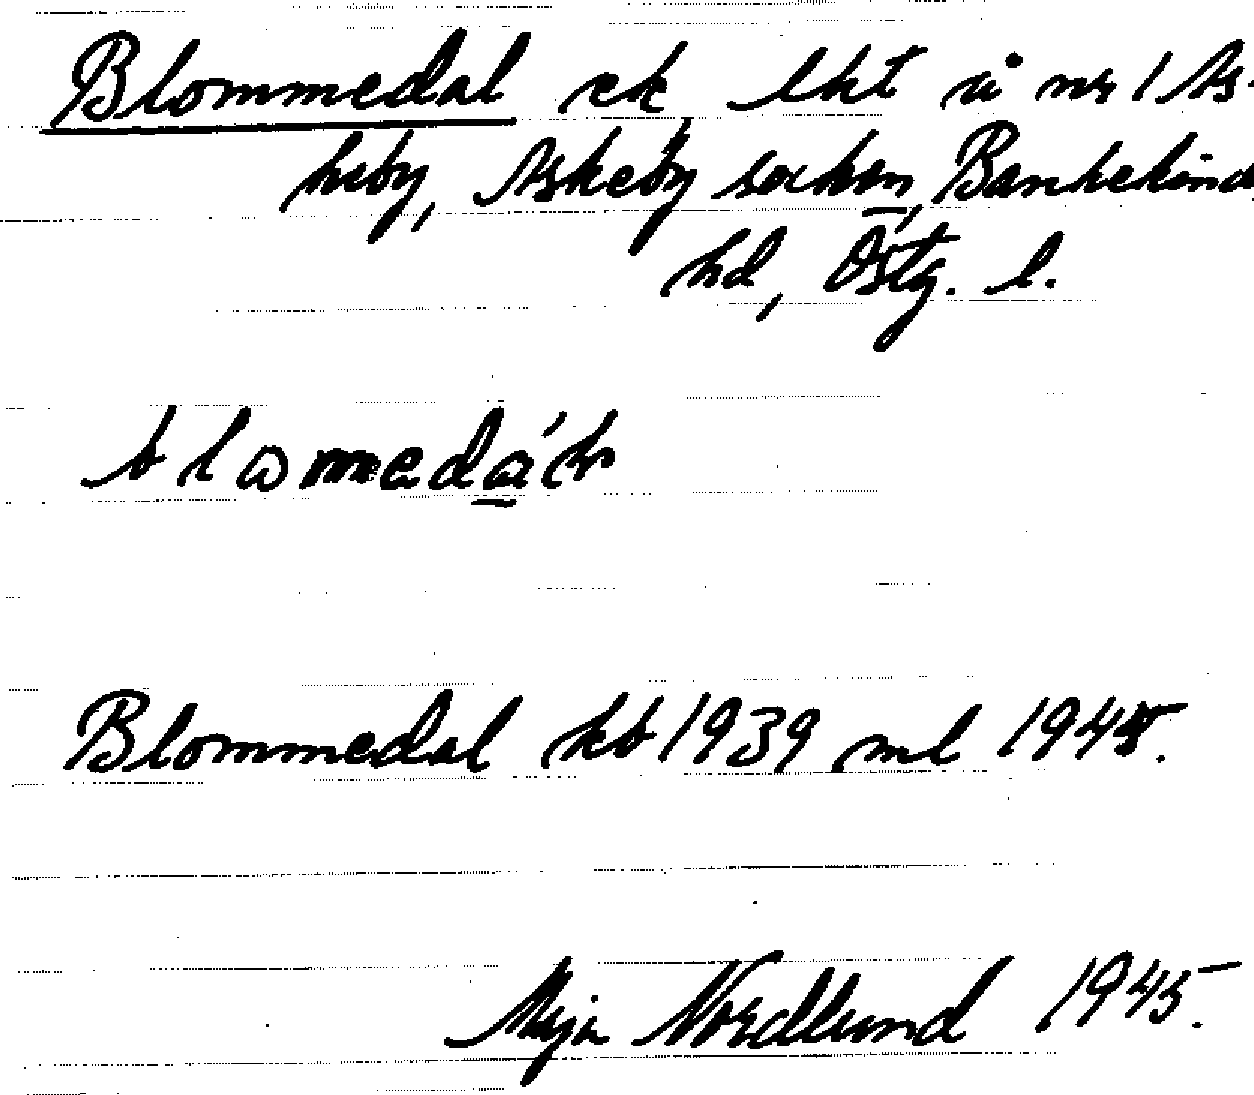 Blommedal ek lht å nr 1 As-
keby, Askeby socken, Bankekind
hd, Östg. l.
Blommedal kb 1939 ml 1945.
Maja Nordlund 1945.